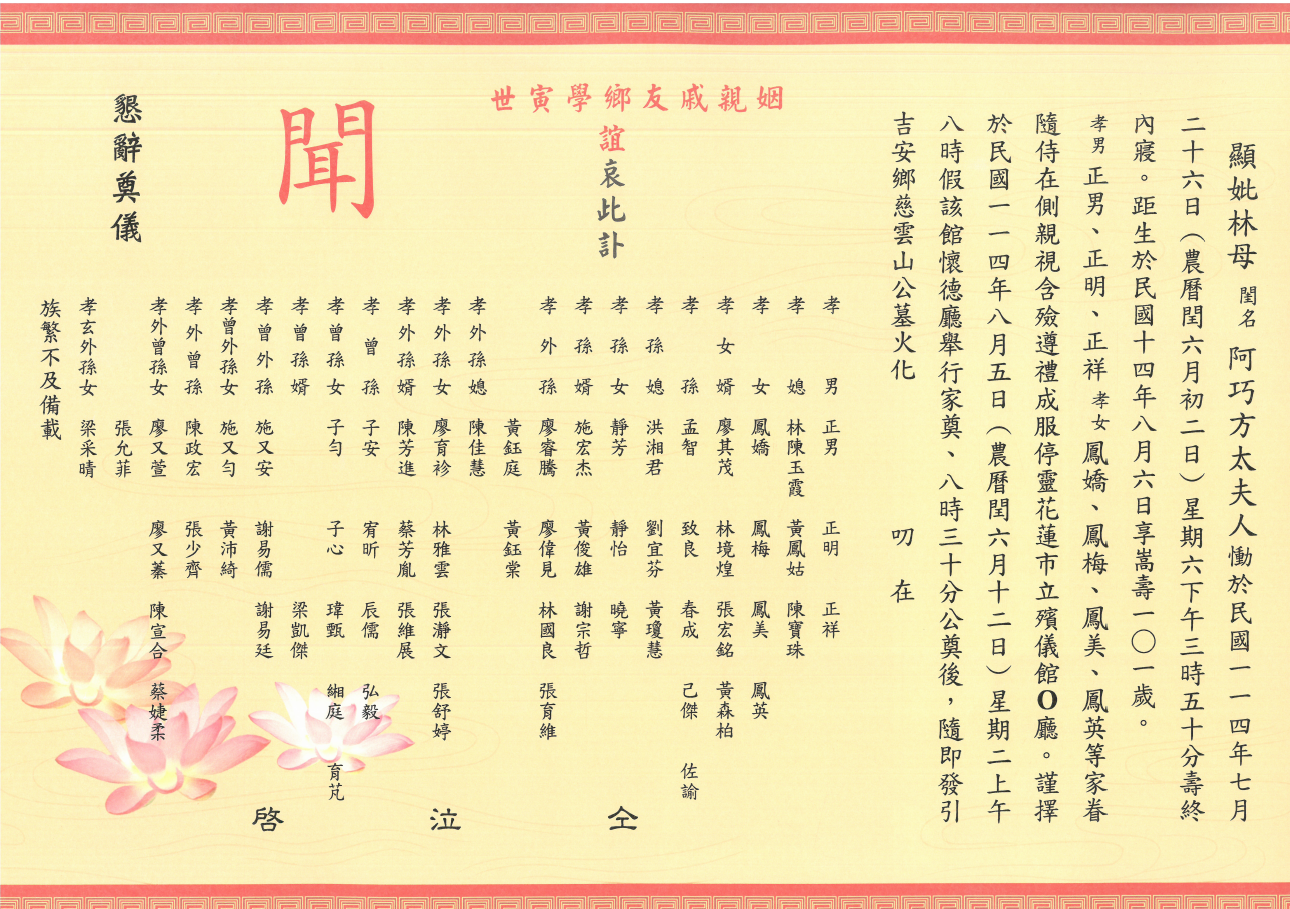 顯妣林母 閨名 阿巧方太夫人慟於民國一一四年七月
二十六日（農曆閏六月初二日）星期六下午三時五十分壽終
內寢。距生於民國十四年八月六日享嵩壽一〇一歲。
孝男 正男、正明、正祥 孝女 鳳嬌、鳳梅、鳳美、鳳英等家眷
隨侍在側親視含殮遵禮成服停靈花蓮市立殯儀館O廳。謹擇
於民國一一四年八月五日（農曆閏六月十二日）星期二上午
八時假該館懷德廳舉行家奠、八時三十分公奠後，隨即發引
吉安鄉慈雲山公墓火化
叨在
姻親戚友鄉學寅世
誼哀此訃
聞
懇辭奠儀
孝男 正男 正明 正祥
孝媳 林陳玉霞 黃鳳姑 陳寶珠
孝女 鳳嬌 鳳梅 鳳美 鳳英
孝女婿 廖其茂 林境煌 張宏銘 黃森柏
孝孫 孟智 致良 春成 己傑 佐諭
孝孫媳 洪湘君 劉宜芬 黃瓊慧
孝孫女 靜芳 靜怡 曉寧
孝孫婿 施宏杰 黃俊雄 謝宗哲
孝外孫 廖睿騰 廖偉見 林國良 張育維
黃鈺庭 黃鈺棠
孝外孫媳 陳佳慧
孝外孫女 廖育袗 林雅雲 張瀞文 張舒婷
孝外孫婿 陳芳進 蔡芳胤 張維展
孝曾孫 子安 宥昕 辰儒 弘毅
孝曾孫女 子勻 子心 瑋甄 緗庭 育芃
孝曾孫婿 梁凱傑
孝曾外孫 施又安 謝易儒 謝易廷
孝曾外孫女 施又勻 黃沛綺
孝外曾孫 陳政宏 張少齊
孝外曾孫女 廖又萱 廖又蓁 陳宣合 蔡婕柔
張允菲
孝玄外孫女 梁采晴
族繁不及備載
仝泣啓